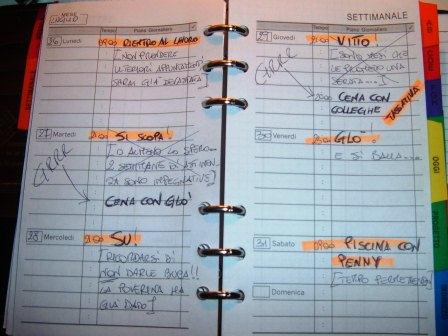 MESE
LUGLIO
Tempo Piano Giornaliero
26 Lunedì
09:00 DIETRO AL LAVORO
[NON PRENDERE
ULTERIORI APPUNTAMENTI
SARAI GIÀ DEVASTATA]
27 Martedì
21:00 SI SCOPA!
[O ALMENO LO SPERO...
2 SETTIMANE DI ASTINEN-
ZA SONO IMPEGNATIVE]
GRRR
CENA CON GLO'
28 Mercoledì
21:00 SU!
[RICORDARSI DI
NON DARLE BUCA!!
LA POVERINA HA
GIÀ DATO]
SETTIMANALE
Tempo Piano Giornaliero
29 Giovedì
21:00 VITTO
[SONO MESI CHE
LE PROMETTO UNA
SERATA...]
GRRR
20:00 CENA CON
COLLEGHE
TASSATIVA
30 Venerdì
21:00 GLO'
E SI BALLA...
31 Sabato
09:00 PISCINA CON
PENNY
[TEMPO PERMETTENDO]
Domenica
OGGI
PROGETTO